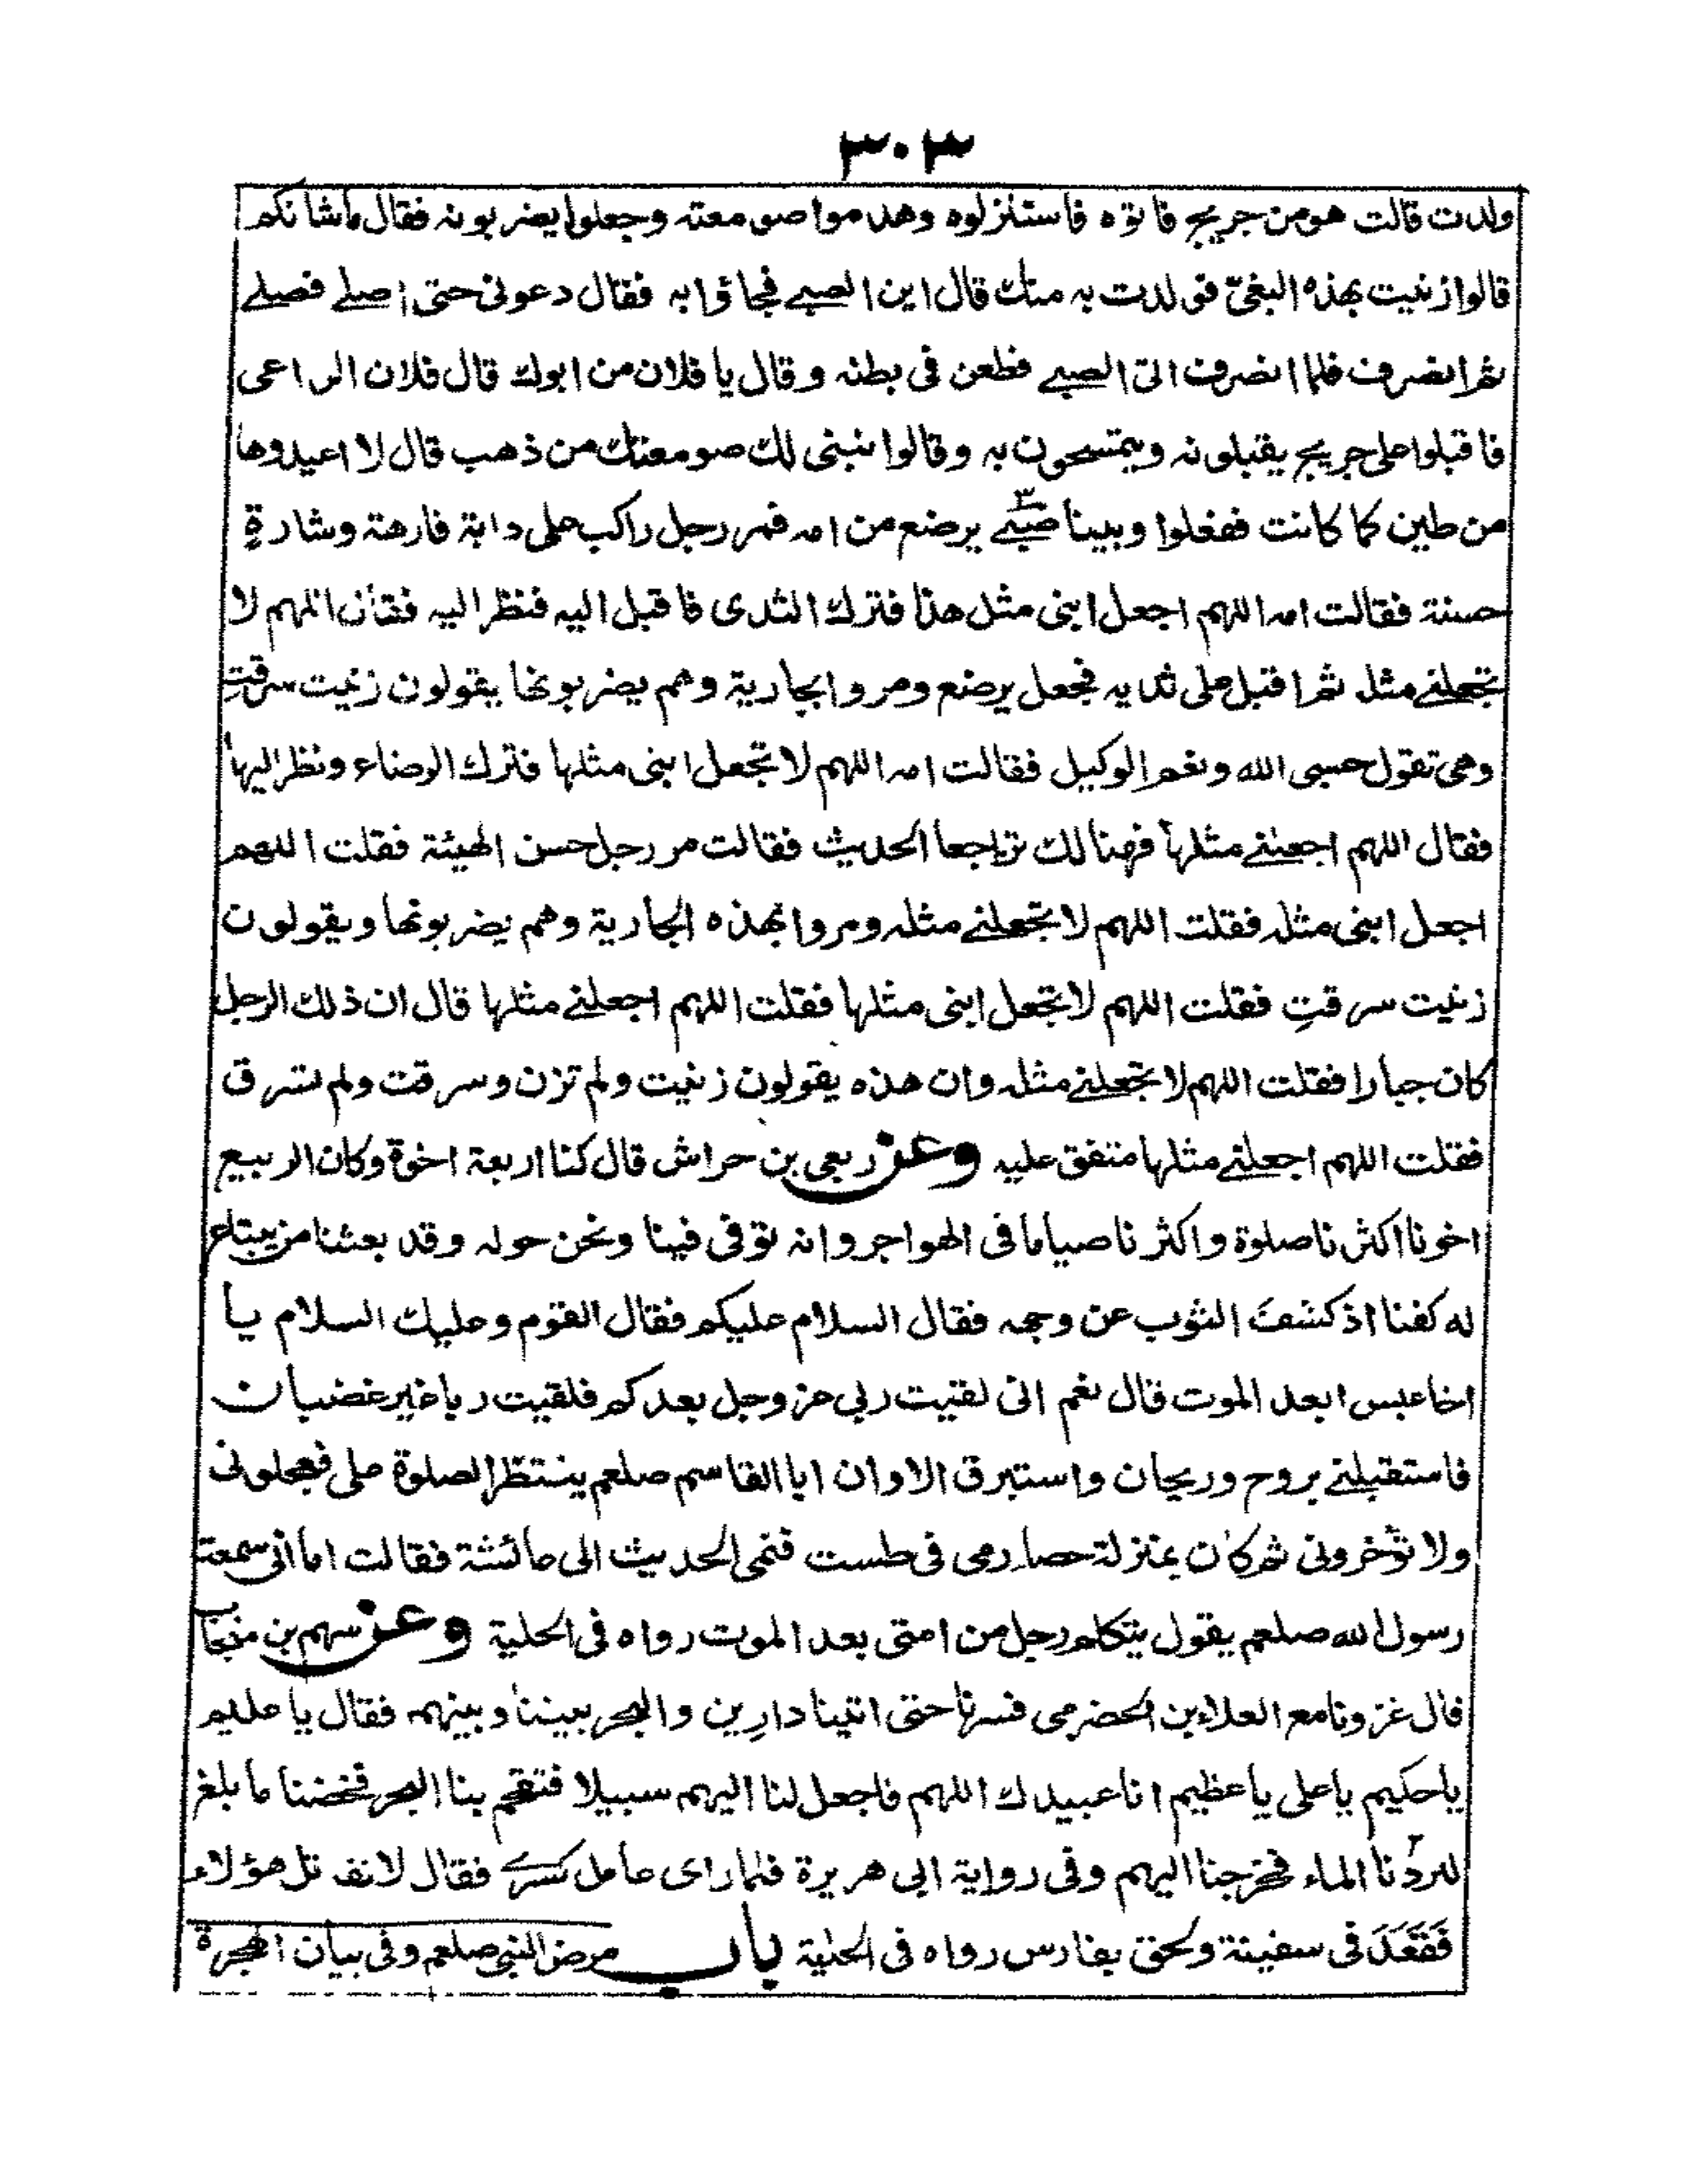 ٣٠٣
ولدت قالت هو من جريج فاتوه فاستنزلوه وهدموا صومعته وجعلوا يضربونه فقال ماشانكم
قالوا زنيت بهذه البغيّ فولدت به منك قال اين الصبے فجاؤا به فقال دعونى حتى اصلے فصلے
ثم انصرف فلما انصرف اتى الصبے فطعن فى بطنه وقال يا فلان من ابوك قال فلان الراعى
فاقبلوا على جريج يقبلونه ويتمسحون به وقالوا نبنى لك صومعتك من ذهب قال لا اعيدوها
من طين كما كانت ففعلوا وبينا صبے يرضع من امه فمر رجل راكب على دابة فارهة وشارةٍ
حسنة فقالت امه اللهم اجعل ابنى مثل هذا فترك الثدى فاقبل اليه فنظر اليه فقال اللهم لا
تجعلنے مثل ثم اقبل على ثديه فجعل يرضع ومروا بجارية وهم يضربونها يقولون زنيت سرقتِ
وهى تقول حسبى الله ونعم الوكيل فقالت امه اللهم لا تجعل ابنى مثلها فترك الرضاع ونظر اليها
فقال اللهم اجعلنے مثلها فهنالك تراجعا الحديث فقالت مر رجل حسن الهيئة فقلت اللهم
اجعل ابنى مثله فقلت اللهم لا تجعلنے مثله ومروا بهذه الجارية وهم يضربونها ويقولون
زنيت سرقتِ فقلت اللهم لا تجعل ابنى مثلها فقلت اللهم اجعلنے مثلها قال ان ذلك الرجل
كان جبارا فقلت اللهم لا تجعلنے مثله وان هذه يقولون زنيت ولم تزن وسرقت ولم تسرق
فقلت اللهم اجعلنے مثلها متفق عليه وعن ربعى بن حراش قال كنا اربعة اخوة وكان الربيع
اخونا اكثرنا صلوة واكثرنا صياما فى الهواجر وانه توفى فبينا ونحن حوله وقد بعثنا من يبتاع
له كفنا اذ كشفَ الثوب عن وجهه فقال السلام عليكم فقال القوم وعليك السلام يا
اخا عبس ابعد الموت قال نعم انى لقيت ربى عز وجل بعدكم فلقيت ربا غير غضبان
فاستقبلنے بروح وريحان واستبرق الا وان ابا القاسم صلعم ينتظر الصلوة على فعجلونى
ولا تؤخرونى ثم كان بمنزلة حصا رمى فى طست فنمى الحديث الى عائشة فقالت اما انى سمعت
رسول الله صلعم يقول يتكلم رجل من امتى بعد الموت رواه فى الحلية وعن سهم بن منجاب
قال غزونا مع العلاء بن الحضرمى فسرنا حتى اتينا دارِين والبحر بيننا وبينهم فقال يا عليم
يا حكيم يا على يا عظيم انا عبيدك اللهم فاجعل لنا اليهم سبيلا فتقحم بنا البحر فخضنا ما بلغ
لبردنا الماء فخرجنا اليهم وفى رواية ابى هريرة فلما راى عامل كسرے فقال لا نقاتل هؤلاء
فَقَعَدَ فى سفينة ولحق بفارس رواه فى الحلية باب مرض النبى صلعم وفى بيان الهجرة